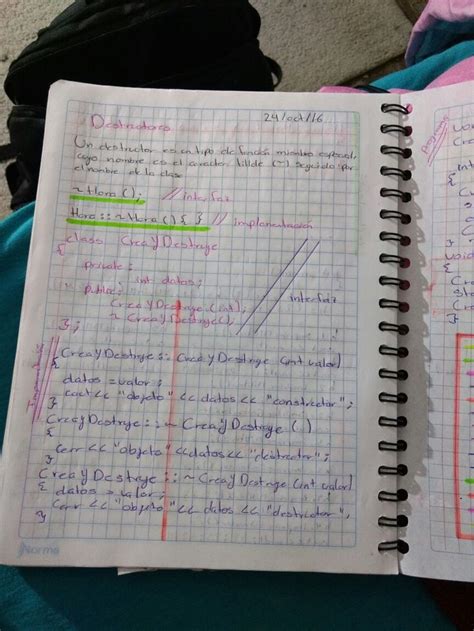 24/oct/16
Destructores
Un destructor es un tipo de función miembro especial,
cuyo nombre es el caracter tilde (~) seguido por
el nombre de la clase
~Hora(); // interfaz
Hora::~Hora(){ } // implementación
class CreaYDestruye
{
private:
int datos;
public:
CreaYDestruye(int);
~CreaYDestruye();
};
interfaz
Implementación
CreaYDestruye:: CreaYDestruye (int valor)
{
datos = valor;
cout << "objeto" << datos << "constructor";
}
CreaYDestruye::~ CreaYDestruye ()
{
cerr << "objeto" << datos << "destructor";
}
CreaYDestruye::~ CreaYDestruye (int valor)
{ datos = valor;
cerr << "objeto" << datos << "destructor",
}
Norma